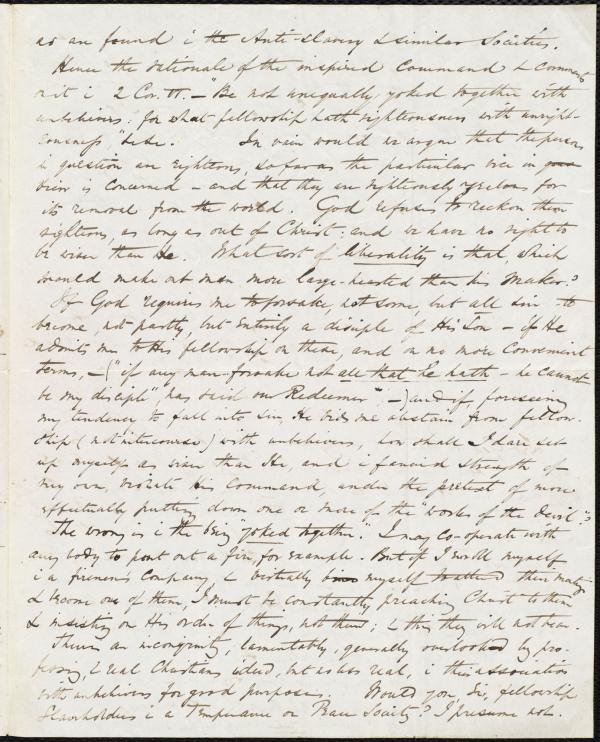 as are found i the Anti-slavery & similar Societies.
Hence the rationale of the inspired Command & Comment
on it i 2 Cor. — "Be not unequally yoked together with
unbelievers: for what fellowship hath righteousness with unright-
eousness" &c &c. In vain would we argue that the persons
in question are righteous, so far as the particular vice in
view is Concerned — and that they are righteously zealous for
its removal from the world. God refuses to reckon them
righteous, as long as out of Christ; and we have no right to
be wiser than He. What sort of liberality is that, which
would make out man more large-hearted than his Maker?
If God requires me to forsake, not some, but all sin — to
become, not partly, but entirely a disciple of His Son — if He
admits me to His fellowship on these, and on no more Convenient
terms, — ("if any man forsake not all that he hath — he cannot
be my disciple", has said our Redeemer", —) and if, foreseeing
my tendency to fall into sin, He bids me abstain from fellow-
ship (not intercourse) with unbelievers, how shall I dare set
up myself as wiser than He, and i fancied strength of
my own, violate His Command, under the pretext of more
effectually putting down one or more of the works of the Devil"?
The wrong is i the being "yoked together." I may co-operate with
any body to put out a fire, for example. But if I enroll myself
i a firemen's Company, & virtually myself to attend their meetings
& become one of them, I must be constantly preaching Christ to them
& insisting on His order of things, not theirs; & this they will not bear.
There's an incongruity, lamentably, generally overlooked by pro-
fessing, & real Christians indeed, but no less real, i this association
with unbelievers for good purposes. Would you, Sir, fellowship
Slaveholders i a Temperance or Peace Society? I presume not.